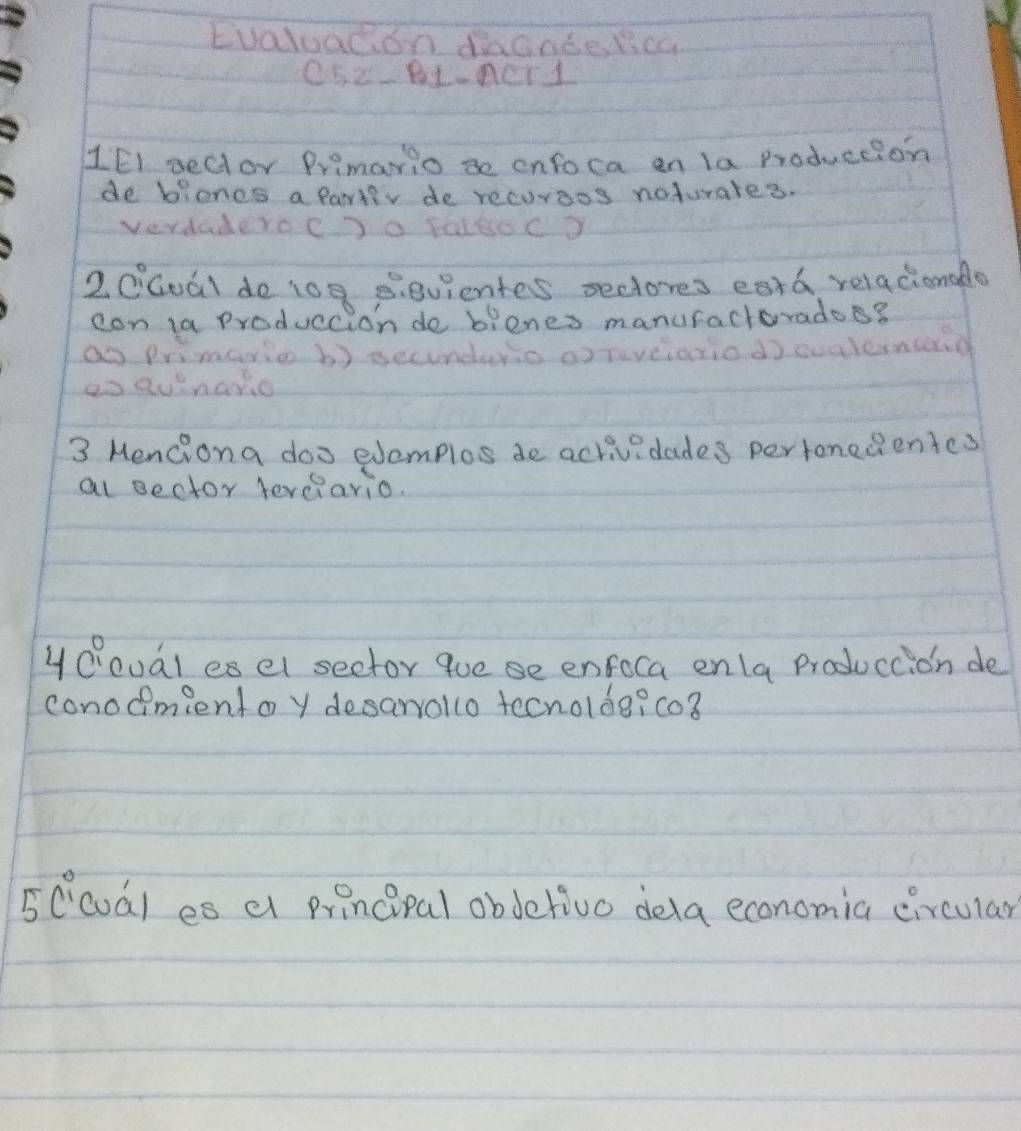 Evaluación diagnóstica
CS2-B1-ACT1
1 El sector Primario se enfoca en la producción
de bienes a Partir de recursos naturales.
verdadero ( ) o Falso ( )
2 ¿Cuál de los siguientes sectores está relacionado
con la Producción de bienes manufacturados?
a) Primario b) secundario c) Terciario d) cuaternario
e) quinario
3 Menciona dos ejemplos de actividades pertenecientes
al sector terciario.
4 ¿cuál es el sector que se enfoca en la Producción de
conocimiento y desarrollo tecnológico?
5 ¿cuál es el principal objetivo de la economia circular